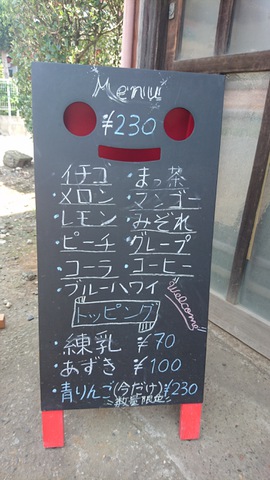 Menu
¥230
・イチゴ ・まっ茶
・メロン ・マンゴー
・レモン ・みぞれ
・ピーチ ・グレープ
・コーラ ・コーヒー
・ブルーハワイ
トッピング
Welcome!!
・練乳 ¥70
・あずき ¥100
・青りんご(今だけ)¥230
数量限定